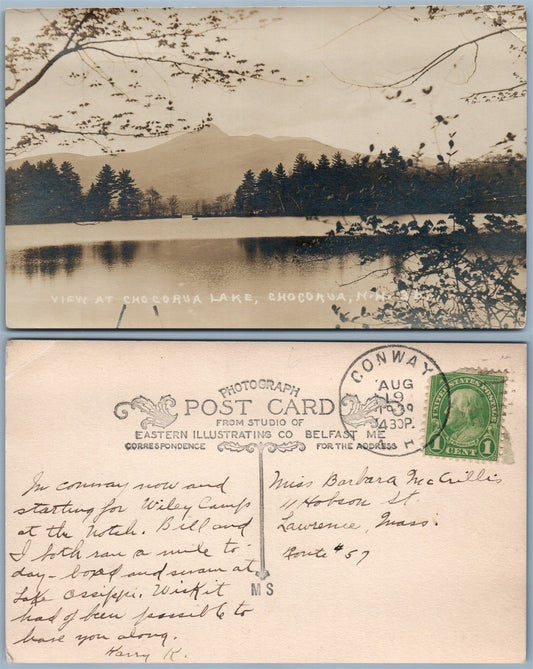 VIEW AT CHOCORUA LAKE, CHOCORUA, N.H.
PHOTOGRAPH
POST CARD
FROM STUDIO OF
EASTERN ILLUSTRATING CO BELFAST ME
CORRESPONDENCE
FOR THE ADDRESS
CONWAY
AUG
19
430P.
H
UNITED STATES POSTAGE
1 1
CENT
In conway now and
starting for Wiley Camp
at the Notch. Bill and
I both ran a mile to-
day - boxed and swam at
Lake Ossippi. Wish it
had of been possible to
have you along.
Harry K.
Miss Barbara McCrillis
11 Hobson St.
Lawrence, Mass.
Route #57
MS